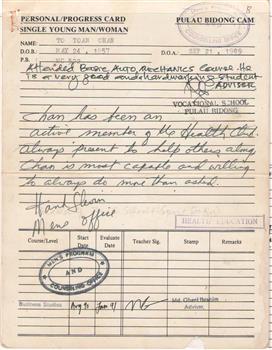 PERSONAL/PROGRESS CARD PULAU BIDONG CAM
SINGLE YOUNG MAN/WOMAN
NAME: TO TOAN CHAN
D.O.B: MAY 24, 1957 D.O.A: SEP 21, 1989
P.B: MC 528
Attended Basic Auto Mechanics Course. He
is a very good and hardworking student
ADVISER
VOCATIONAL SCHOOL
PULAU BIDONG
Chan has been an
active member of the Health Club.
Always present to help others along
Chan is most capable and willing
to always do more than asked.
Mens Office
HEALTH EDUCATION
Course/Level Start Date Evaluate Date Teacher Sign. Stamp Remarks
MEN'S PROGRAM
AND
COUNSELING OFFICE
Business Studies Aug 90 Jan 91 Md. Ghani Ibrahim
Advisor,